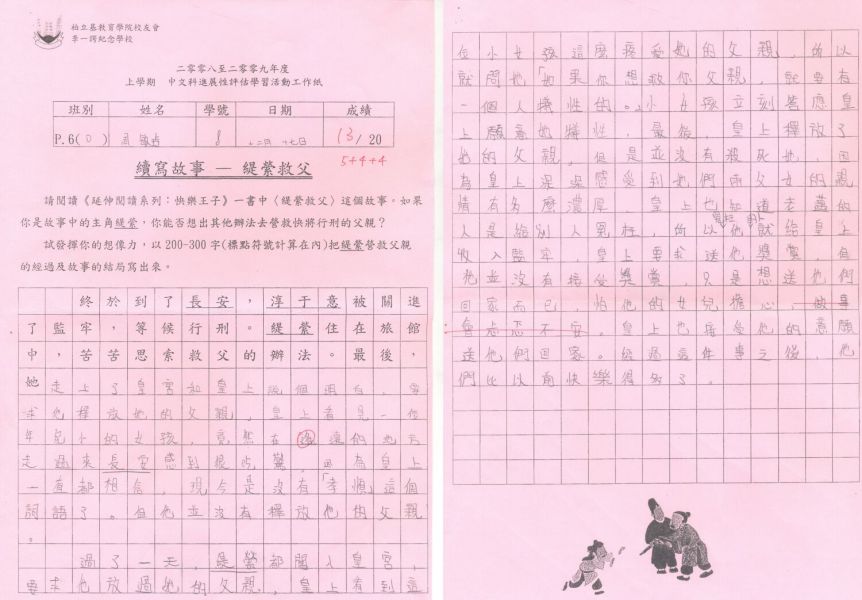 柏立基教育學院校友會
李一諤紀念學校
二零零八至二零零九年度
上學期 中文科進展性評估學習活動工作紙
班別 姓名 學號 日期 成績
P.6( ) 8 十二月十七日 13/20
5+4+4
續寫故事 — 緹縈救父
請閱讀《延伸閱讀系列：快樂王子》一書中〈緹縈救父〉這個故事。如果
你是故事中的主角緹縈，你能否想出其他辦法去營救快將行刑的父親？
試發揮你的想像力，以200-300字(標點符號計算在內)把緹縈營救父親
的經過及故事的結局寫出來。
終於到了長安，淳于意被關進
了監牢，等候行刑。緹縈住在旅館
中，苦苦思索救父的辦法。最後，
她走上了皇宮和皇上說個明白，要
求他釋放她的父親，皇上看見一位
年紀小的女孩，竟然在遙遠的地方
走過來長安感到很吃驚，因為皇上
一直都相信，現今是沒有「孝順」這個
詞語了。但他並沒有釋放他的父親
。
過了一天，緹縈都闖入皇宮，
要求他放過她的父親，皇上看到這
位小女孩這麼疼愛她的父親，所以
就問她「如果你想救你父親，就要有
一個人犧牲的。」小女孩立刻答應皇
上願意她犧牲，最後，皇上釋放了
她的父親，但是並沒有殺死她，因
為皇上深深感受到她們兩父女的親
情有多麼濃厚，皇上也知道老舊的
人是給別人冤枉，所以他就給皇上
收入監牢，皇上要求送他獎賞，但
他並沒有接受獎賞，只是想送他們
回家而已，怕他的女兒擔心，做事
會忐忑不安。皇上也接受他的意願
送他們回家。經過這件事之後，他
們比以前快樂得多了。